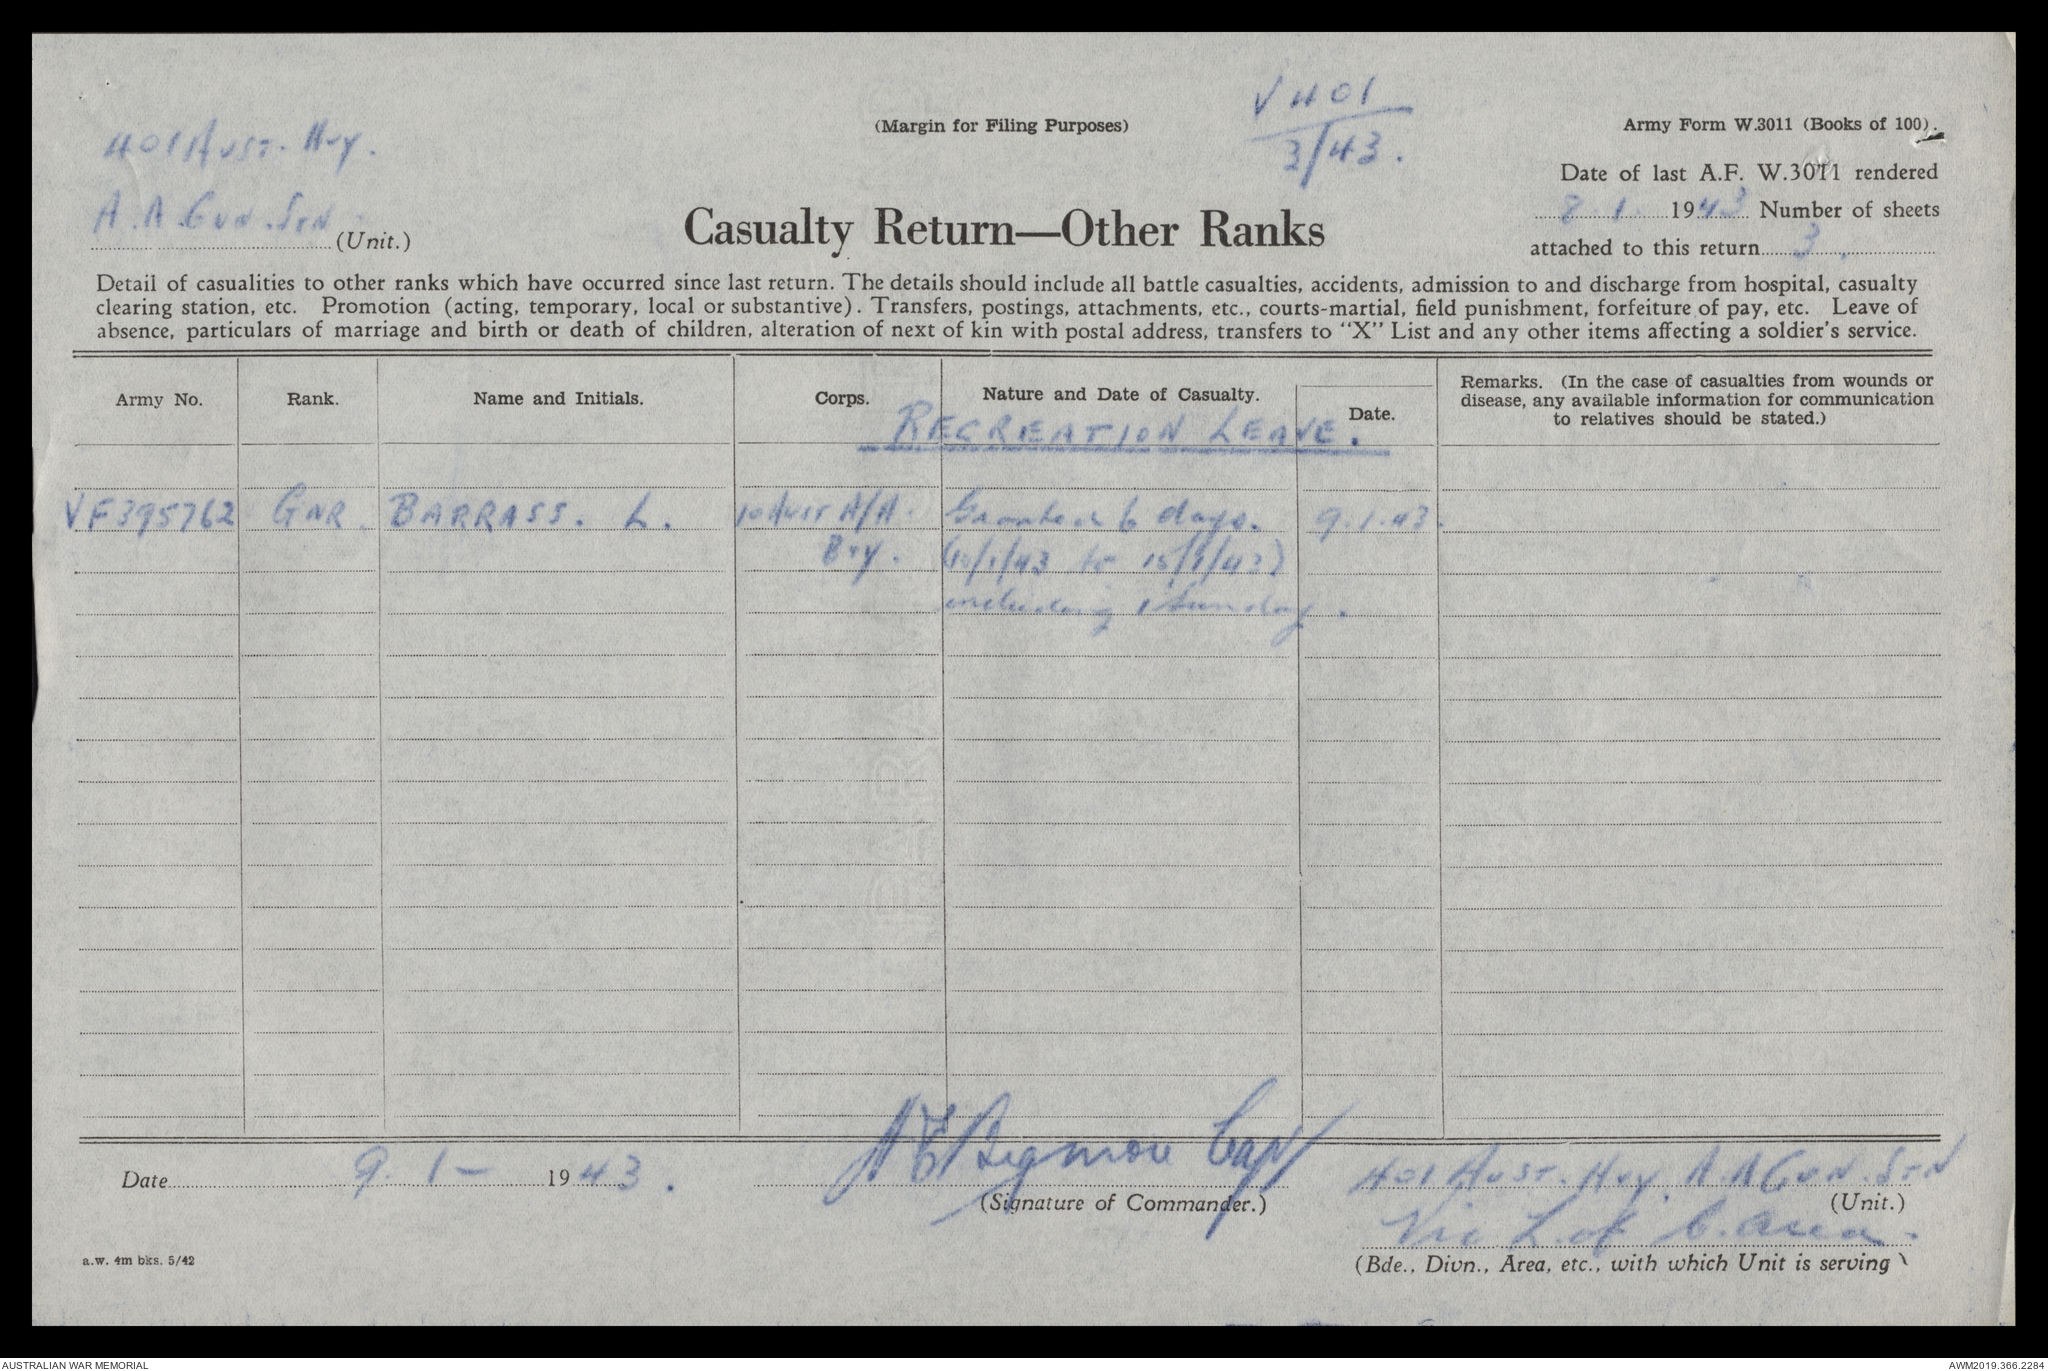 V 401
3/43.
(Margin for Filing Purposes)
Army Form W.3011 (Books of 100).
401 Aust. Hvy.
A.A. Gun. Stn.
(Unit.)
Casualty Return—Other Ranks
Date of last A.F. W.3011 rendered
8.1. 1943 Number of sheets
attached to this return 3.
Detail of casualities to other ranks which have occurred since last return. The details should include all battle casualties, accidents, admission to and discharge from hospital, casualty
clearing station, etc. Promotion (acting, temporary, local or substantive). Transfers, postings, attachments, etc., courts-martial, field punishment, forfeiture of pay, etc. Leave of
absence, particulars of marriage and birth or death of children, alteration of next of kin with postal address, transfers to "X" List and any other items affecting a soldier's service.
Army No. Rank. Name and Initials. Corps. Nature and Date of Casualty. Date. Remarks. (In the case of casualties from wounds or
disease, any available information for communication
to relatives should be stated.)
RECREATION LEAVE.
VF395762 GNR. BARRASS. L. 10 Aust A/A. Granted 6 days. 9.1.43.
Bty. (10/1/43 to 15/1/43)
including 1 Sunday.
Date 9.1- 1943.
Capt
(Signature of Commander.)
401 Aust. Hvy. A.A Gun. Stn
(Unit.)
Vic L of C. Area.
(Bde., Divn., Area, etc., with which Unit is serving
a.w. 4m bks. 5/42
AUSTRALIAN WAR MEMORIAL
AWM2019.366.2284